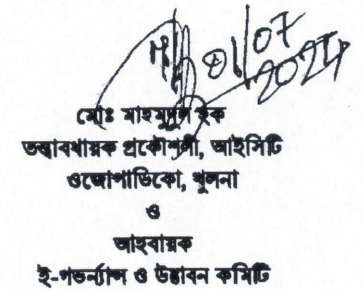 01/07
2024
মোঃ মাহমুদুল হক
তত্ত্বাবধায়ক প্রকৌশলী, আইসিটি
ওজোপাডিকো, খুলনা
ও
আহবায়ক
ই-গভর্ন্যান্স ও উদ্ভাবন কমিটি